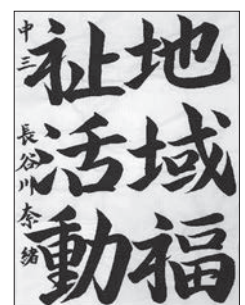 地域福
祉活動
中三 長谷川奈緒